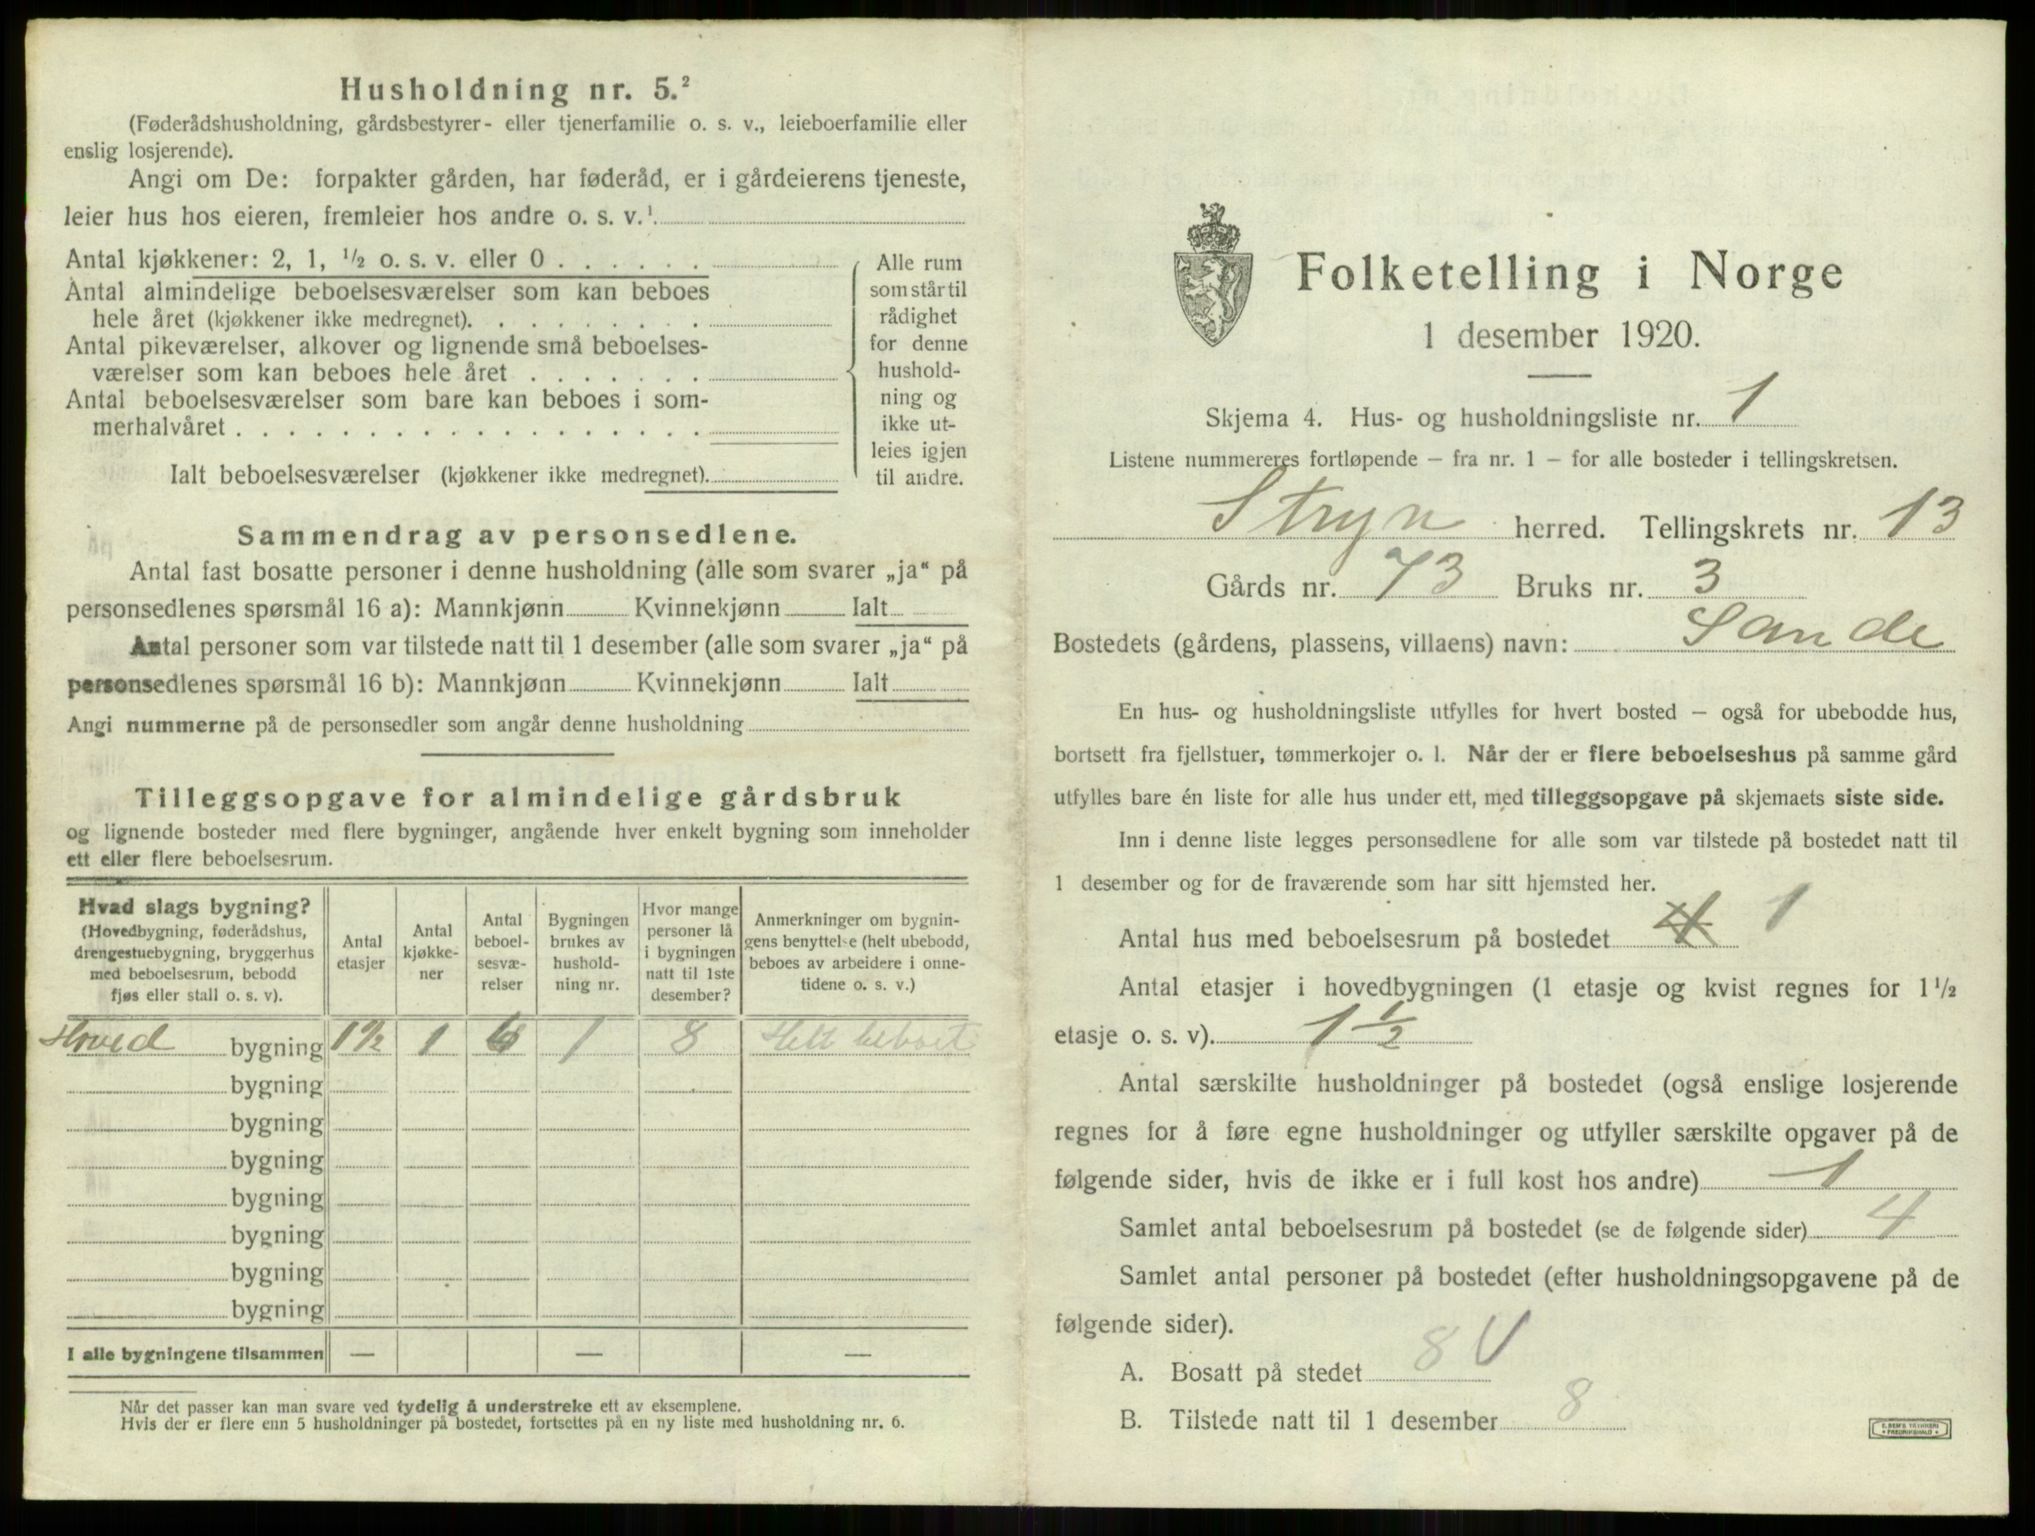 Husholdning nr. 5.²
(Føderådshusholdning, gårdsbestyrer- eller tjenerfamilie o. s. v., leieboerfamilie eller
enslig losjerende).
Angi om De: forpakter gården, har føderåd, er i gårdeierens tjeneste,
leier hus hos eieren, fremleier hos andre o. s. v.¹
Antal kjøkkener: 2, 1, ½ o. s. v. eller 0 . . . . . .
Antal almindelige beboelsesværelser som kan beboes
hele året (kjøkkener ikke medregnet). . . . . . . . .
Antal pikeværelser, alkover og lignende små beboelses-
værelser som kan beboes hele året . . . . . . .
Antal beboelsesværelser som bare kan beboes i som-
merhalvåret . . . . . . . . . . . . . . . . . .
Ialt beboelsesværelser (kjøkkener ikke medregnet).
Alle rum
som står til
rådighet
for denne
hushold-
ning og
ikke ut-
leies igjen
til andre.
Sammendrag av personsedlene.
Antal fast bosatte personer i denne husholdning (alle som svarer „ja“ på
personsedlenes spørsmål 16 a): Mannkjønn Kvinnekjønn Ialt
Antal personer som var tilstede natt til 1 desember (alle som svarer „ja“ på
personsedlenes spørsmål 16 b): Mannkjønn Kvinnekjønn Ialt
Angi nummerne på de personsedler som angår denne husholdning
Tilleggsopgave for almindelige gårdsbruk
og lignende bosteder med flere bygninger, angående hver enkelt bygning som inneholder
ett eller flere beboelsesrum.
Hvad slags bygning?
(Hovedbygning, føderådshus,
drengestuebygning, bryggerhus
med beboelsesrum, bebodd
fjøs eller stall o. s. v).
Antal
etasjer
Antal
kjøkke-
ner
Antal
beboel-
sesvæ-
relser
Bygningen
brukes av
hushold-
ning nr.
Hvor mange
personer lå
i bygningen
natt til 1ste
desember?
Anmerkninger om bygnin-
gens benyttelse (helt ubebodd,
beboes av arbeidere i onne-
tidene o. s. v.)
Hoved bygning 1½ 1 1 8 Helt beboet
bygning
bygning
bygning
bygning
bygning
bygning
bygning
I alle bygningene tilsammen — — —
Når det passer kan man svare ved tydelig å understreke ett av eksemplene.
Hvis der er flere enn 5 husholdninger på bostedet, fortsettes på en ny liste med husholdning nr. 6.
Folketelling i Norge
1 desember 1920.
Skjema 4. Hus- og husholdningsliste nr. 1
Listene nummereres fortløpende – fra nr. 1 – for alle bosteder i tellingskretsen.
Stryn herred. Tellingskrets nr. 13
Gårds nr. 73 Bruks nr. 3
Bostedets (gårdens, plassens, villaens) navn: Sande
En hus- og husholdningsliste utfylles for hvert bosted – også for ubebodde hus,
bortsett fra fjellstuer, tømmerkojer o. l. Når der er flere beboelseshus på samme gård
utfylles bare én liste for alle hus under ett, med tilleggsopgave på skjemaets siste side.
Inn i denne liste legges personsedlene for alle som var tilstede på bostedet natt til
1 desember og for de fraværende som har sitt hjemsted her.
Antal hus med beboelsesrum på bostedet 1
Antal etasjer i hovedbygningen (1 etasje og kvist regnes for 1½
etasje o. s. v). 1½
Antal særskilte husholdninger på bostedet (også enslige losjerende
regnes for å føre egne husholdninger og utfyller særskilte opgaver på de
følgende sider, hvis de ikke er i full kost hos andre) 1
Samlet antal beboelsesrum på bostedet (se de følgende sider) 4
Samlet antal personer på bostedet (efter husholdningsopgavene på de
følgende sider).
A. Bosatt på stedet 8 V
B. Tilstede natt til 1 desember 8